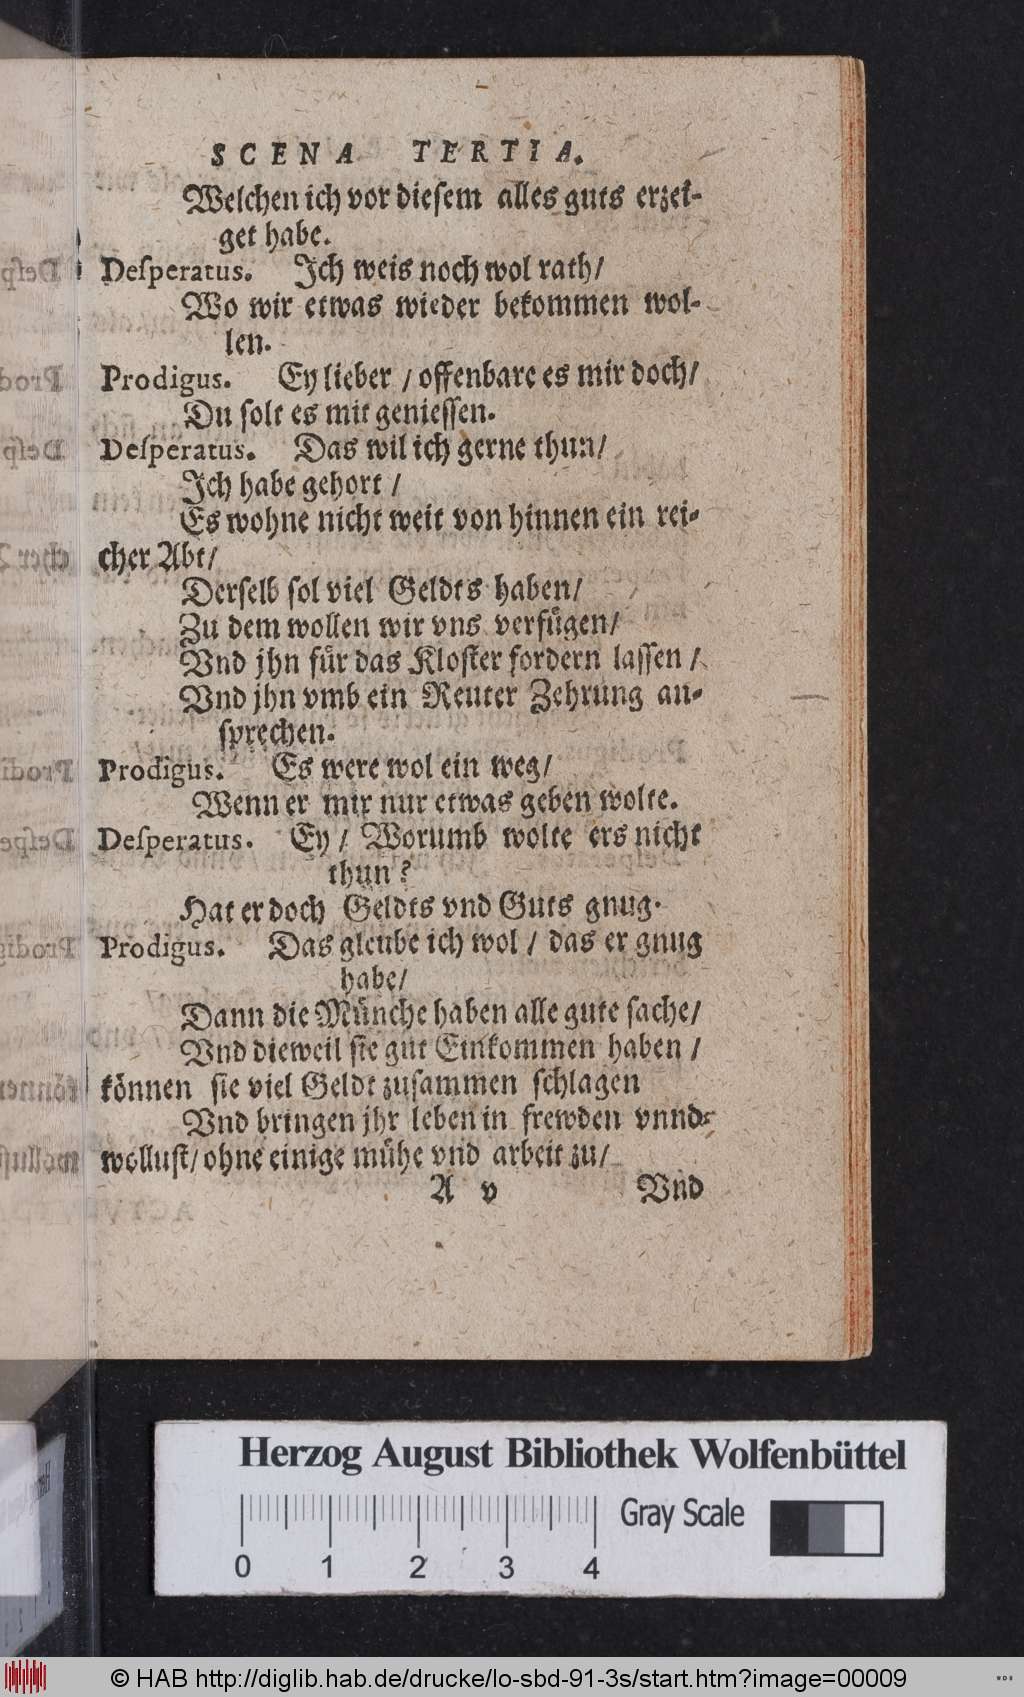 SCENA TERTIA.
Welchen ich vor diesem alles guts erzei-
get habe.
Desperatus. Ich weis noch wol rath/
Wo wir etwas wieder bekommen wol-
len.
Prodigus. Ey lieber / offenbare es mir doch/
Du solt es mit geniessen.
Desperatus. Das wil ich gerne thun/
Ich habe gehort /
Es wohne nicht weit von hinnen ein rei-
cher Abt/
Derselb sol viel Geldts haben/
Zu dem wollen wir vns verfügen/
Vnd jhn für das Kloster fordern lassen /
Vnd jhn vmb ein Reuter Zehrung an-
sprechen.
Prodigus. Es were wol ein weg/
Wenn er mir nur etwas geben wolte.
Desperatus. Ey / Worumb wolte ers nicht
thun?
Hat er doch Geldts vnd Guts gnug.
Prodigus. Das gleube ich wol / das er gnug
habe/
Dann die Münche haben alle gute sache/
Vnd dieweil sie gut Einkommen haben /
können sie viel Geldt zusammen schlagen
Vnd bringen jhr leben in frewden vnnd
wollust/ ohne einige mühe vnd arbeit zu/
A v Vnd
Herzog August Bibliothek Wolfenbüttel
Gray Scale
0 1 2 3 4
© HAB http://diglib.hab.de/drucke/lo-sbd-91-3s/start.htm?image=00009